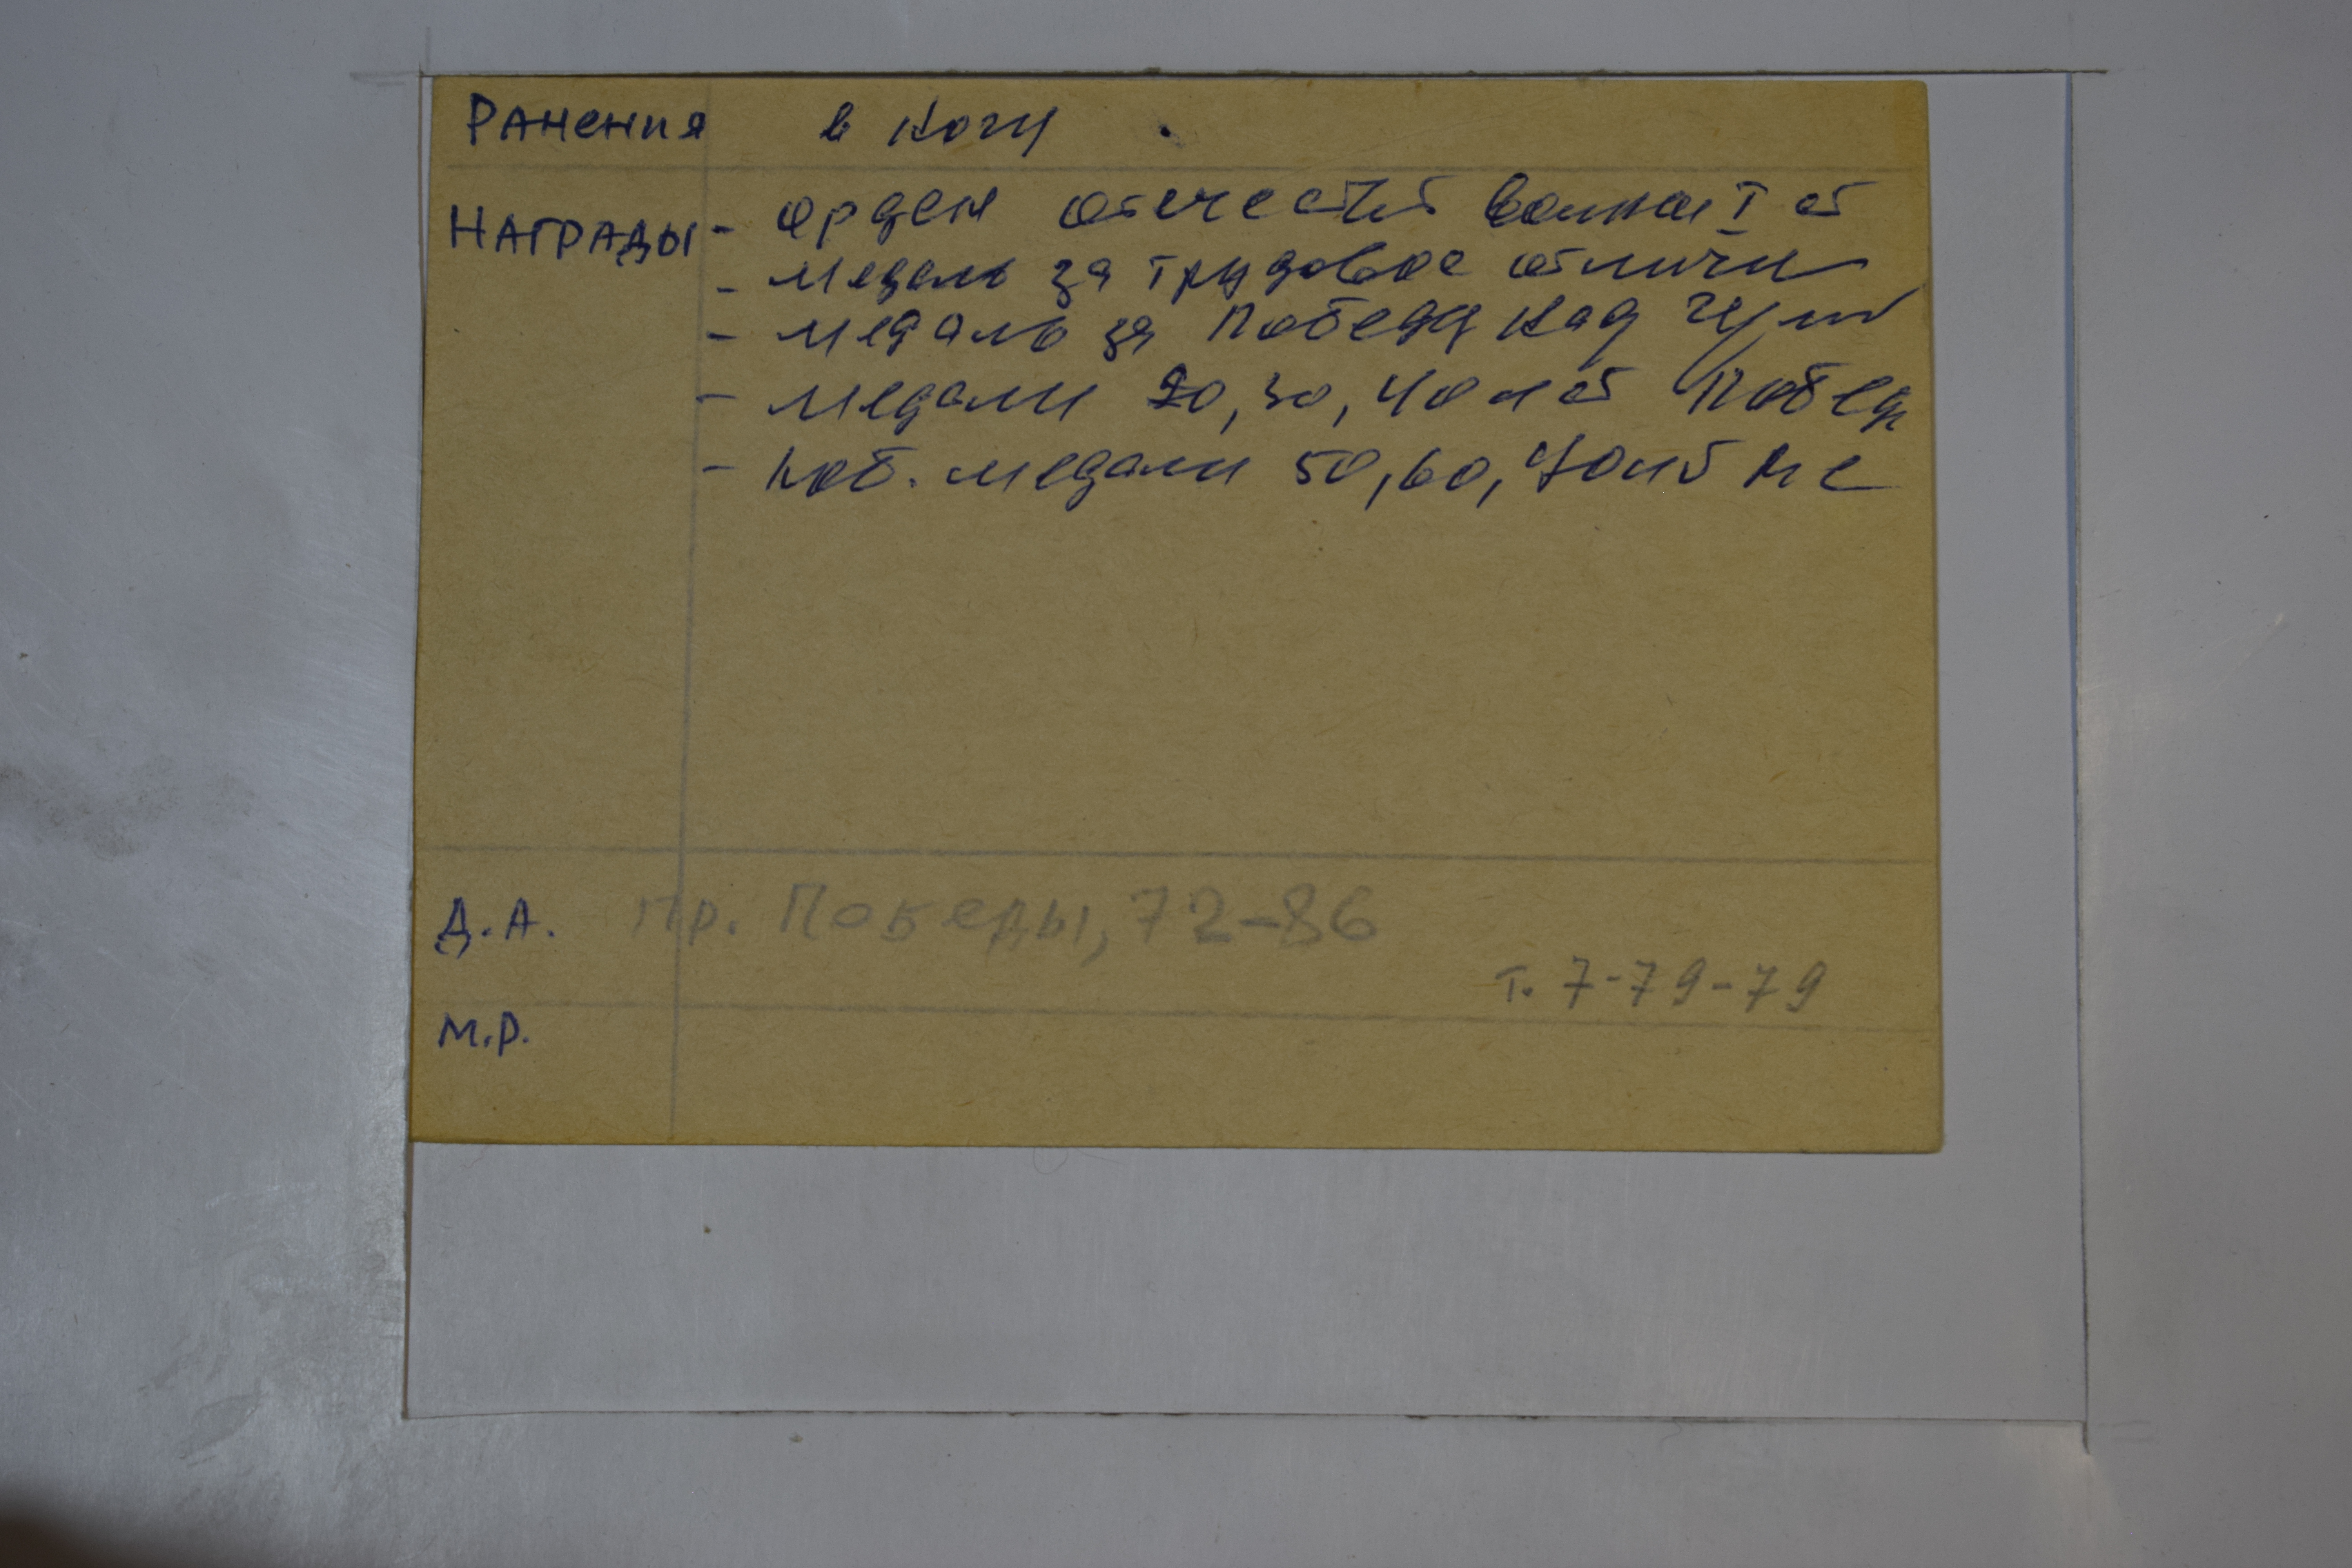 Ранения в ногу
Награды - орден отечеств войны I ст
- медаль за трудовое отличие
- медаль за Победу над герм
- медали 20, 30, 40 лет Побед
- юб. медали 50, 60, 70 лет
Д.А. пр. Победы, 72-86
т. 7-79-79
М.Р.